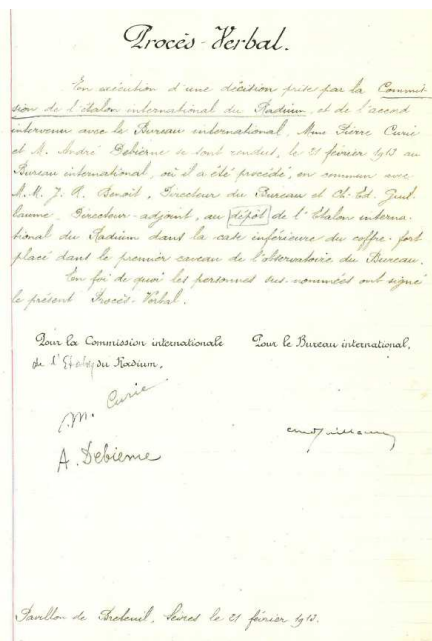 Procès-Verbal.
En exécution d'une décision prise par la Commis-
sion de l'étalon international du Radium, et de l'accord
intervenu avec le Bureau international, Mme Pierre Curie
et M. André Debierne se sont rendus, le 21 février 1913 au
Bureau international, où il a été procédé, en commun avec
M.M. J. R. Benoît, Directeur du Bureau et Ch. Ed. Guil-
laume, Directeur-adjoint, au dépôt de l'Etalon interna-
tional du Radium dans la case inférieure du coffre-fort
placé dans le premier caveau de l'observatoire du Bureau.
En foi de quoi les personnes sus-nommées ont signé
le présent Procès-Verbal.
Pour la Commission internationale Pour le Bureau international,
de l' du Radium.
M. Curie
A. Debierne
Pavillon de Breteuil, Sèvres le 21 février 1913.